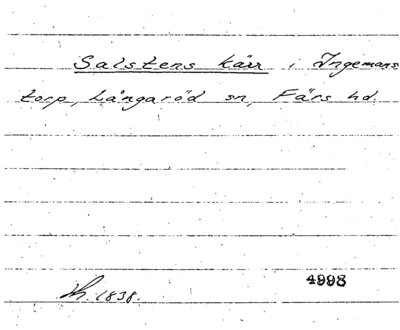 Salstens kärr i Ingemans
torp, Långaröd sn, Färs hd.
1838.
4998